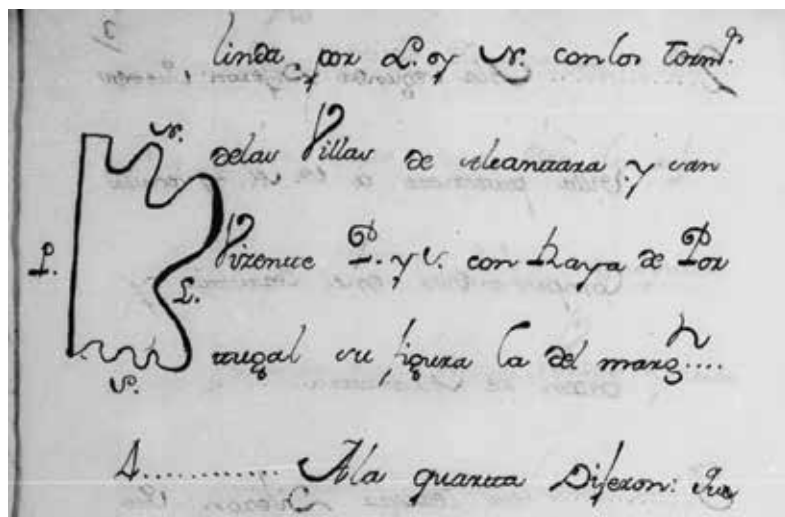 linda por L. y N. con los term.ˢ
N.
delas Villas de Alcantara y san
Vizente P. y S. con Raya de Por
P.
L.
tugal su figura la del marg.ⁿ....
S.
4........... Ala quarta Dijeron: que